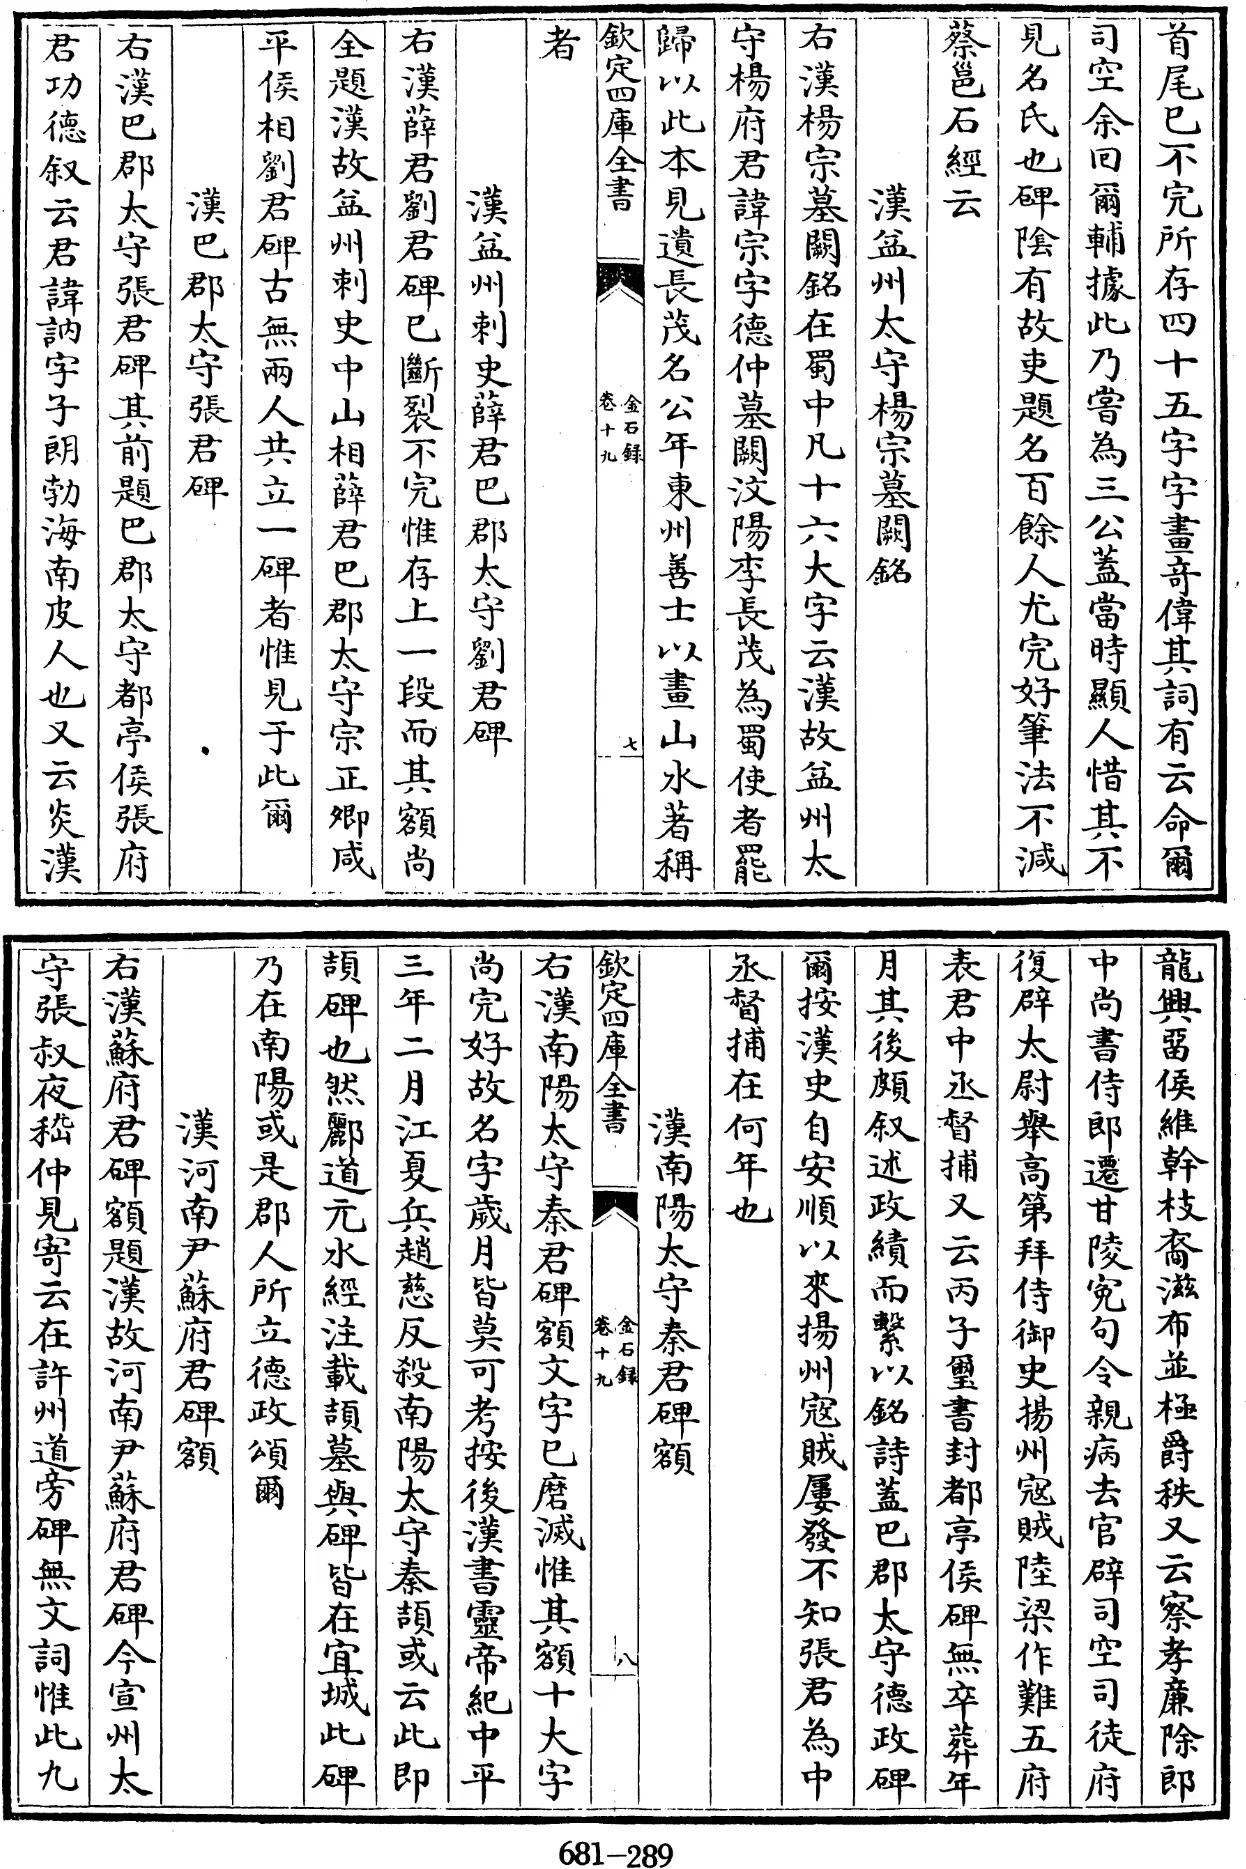 首尾已不完所存四十五字字畫竒偉其詞有云命爾
司空余曰爾輔據此乃嘗為三公蓋當時顯人惜其不
見名氏也碑陰有故吏題名百餘人尤完好筆法不減
蔡邕石經云
漢益州太守楊宗墓闕銘
右漢楊宗墓闕銘在蜀中凡十六大字云漢故益州太
守楊府君諱宗字德仲墓闕汶陽李長茂為蜀使者罷
歸以此本見遺長茂名公年東州善士以畫山水著稱
欽定四庫全書
金石録
卷十九
七
者
漢益州刺史薛君巴郡太守劉君碑
右漢薛君劉君碑已斷裂不完惟存上一段而其額尚
全題漢故益州刺史中山相薛君巴郡太守宗正卿咸
平侯相劉君碑古無兩人共立一碑者惟見于此爾
漢巴郡太守張君碑
右漢巴郡太守張君碑其前題巴郡太守都亭侯張府
君功德叙云君諱訥字子朗勃海南皮人也又云炎漢
龍興畱侯維幹枝裔滋布並極爵秩又云察孝廉除郎
中尚書侍郎遷甘陵寃句令親病去官辟司空司徒府
復辟太尉舉高第拜侍御史揚州寇賊陸梁作難五府
表君中丞督捕又云丙子璽書封都亭侯碑無卒葬年
月其後頗叙述政績而繫以銘詩蓋巴郡太守德政碑
爾按漢史自安順以來揚州寇賊屢發不知張君為中
丞督捕在何年也
漢南陽太守秦君碑額
欽定四庫全書
金石録
卷十九
八
右漢南陽太守秦君碑額文字已磨滅惟其額十大字
尚完好故名字歲月皆莫可考按後漢書靈帝紀中平
三年二月江夏兵趙慈反殺南陽太守秦頡或云此即
頡碑也然酈道元水經注載頡墓與碑皆在宜城此碑
乃在南陽或是郡人所立德政頌爾
漢河南尹蘇府君碑額
右漢蘇府君碑額題漢故河南尹蘇府君碑今宣州太
守張叔夜嵇仲見寄云在許州道旁碑無文詞惟此九
681-289